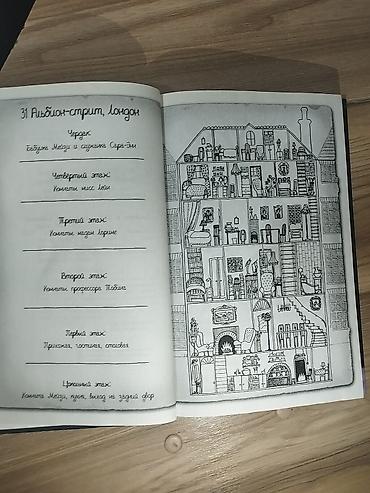 31 Альбион-стрит, Лондон
Чердак
Бабушка Мейзи и служанка Сара-Энн
Четвёртый этаж
Комнаты мисс Лейн
Третий этаж
Комнаты мадам Лорине
Второй этаж
Комнаты профессора Тобина
Первый этаж
Прихожая, гостиная, столовая
Цокольный этаж
Комната Мейзи, кухня, выход на задний двор